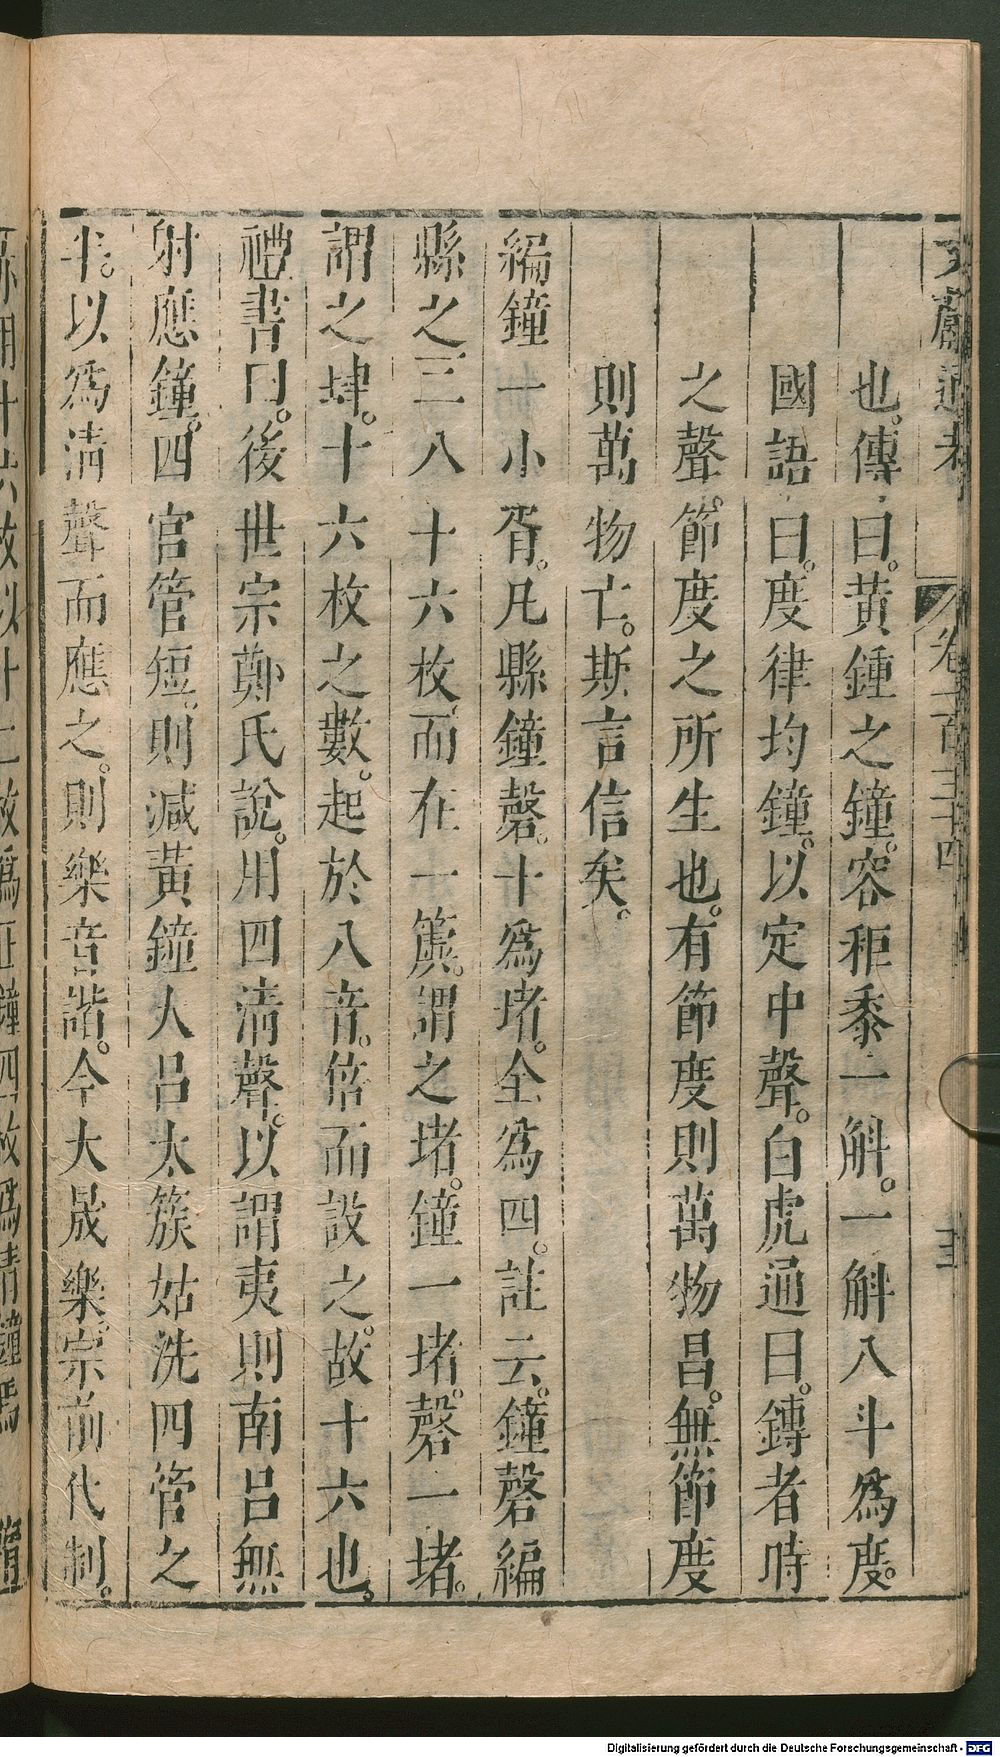 文獻通考 卷一百三十四
也。傳曰。黃鍾之鐘。容秬黍一斛。一斛八斗爲度。
國語曰。度律均鐘。以定中聲。白虎通曰。鏄者時
之聲。節度之所生也。有節度則萬物昌。無節度
則萬物亡。斯言信矣。
編鐘一小胥。凡縣鐘磬。十爲堵。全爲四。註云。鐘磬編
縣之三八十六枚。而在一簴。謂之堵。鐘一堵。磬一堵。
謂之肆。十六枚之數。起於八音。倍而設之。故十六也。
禮書曰。後世宗鄭氏說。用四清聲。以謂夷則南呂無
射應鐘。四官管短。則減黃鐘大呂太簇姑洗四管之
半。以爲清聲而應之。則樂音諧。今大晟樂。宗前代制。
Digitalisierung gefördert durch die Deutsche Forschungsgemeinschaft - DFG